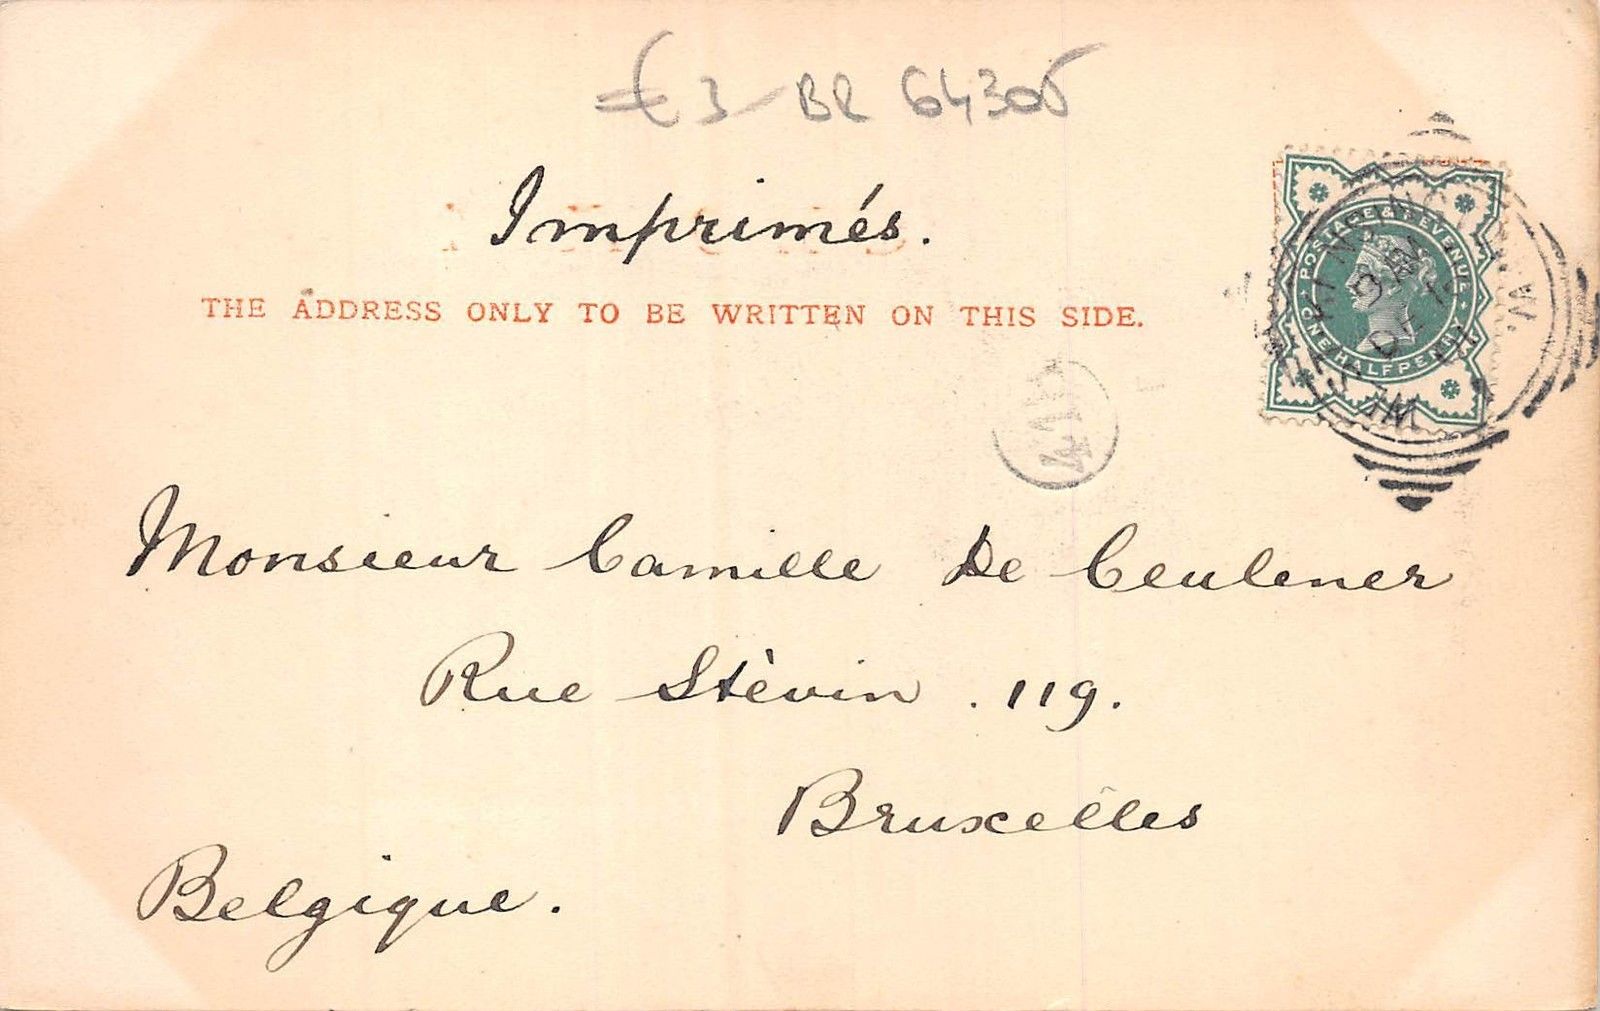 € 3 BR 64305
Imprimés.
THE ADDRESS ONLY TO BE WRITTEN ON THIS SIDE.
POSTAGE & REVENUE
ONE HALFPENNY
Monsieur Camille De Ceulener
Rue Stévin . 119.
Bruxelles
Belgique.